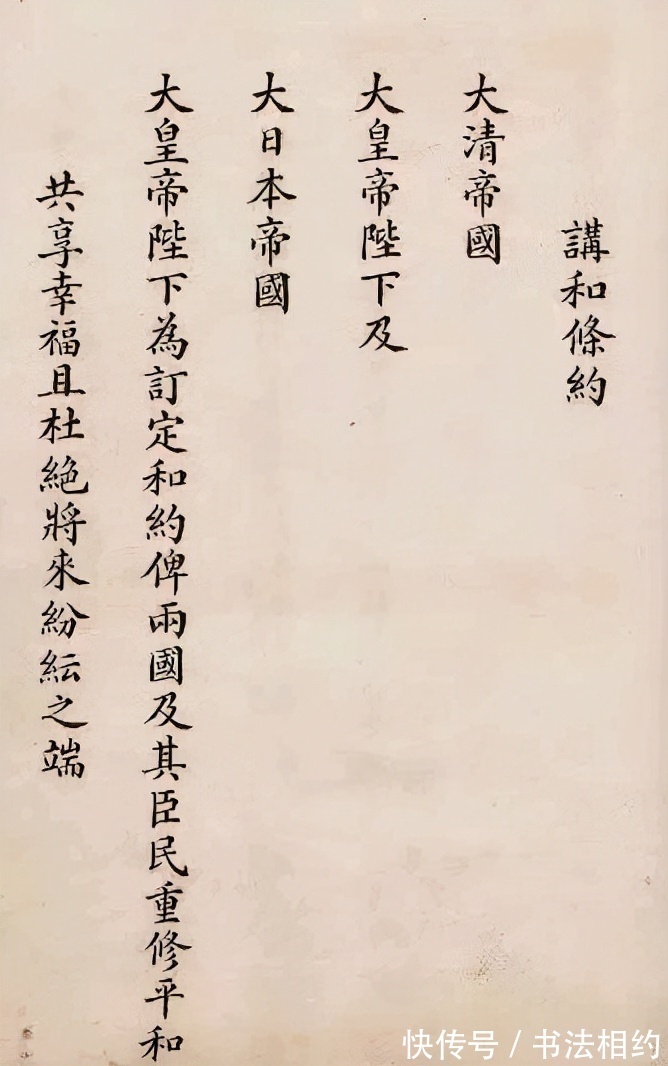 講和條約
大清帝國
大皇帝陛下及
大日本帝國
大皇帝陛下為訂定和約俾兩國及其臣民重修平和
共享幸福且杜絕將來紛紜之端
快传号/书法相约